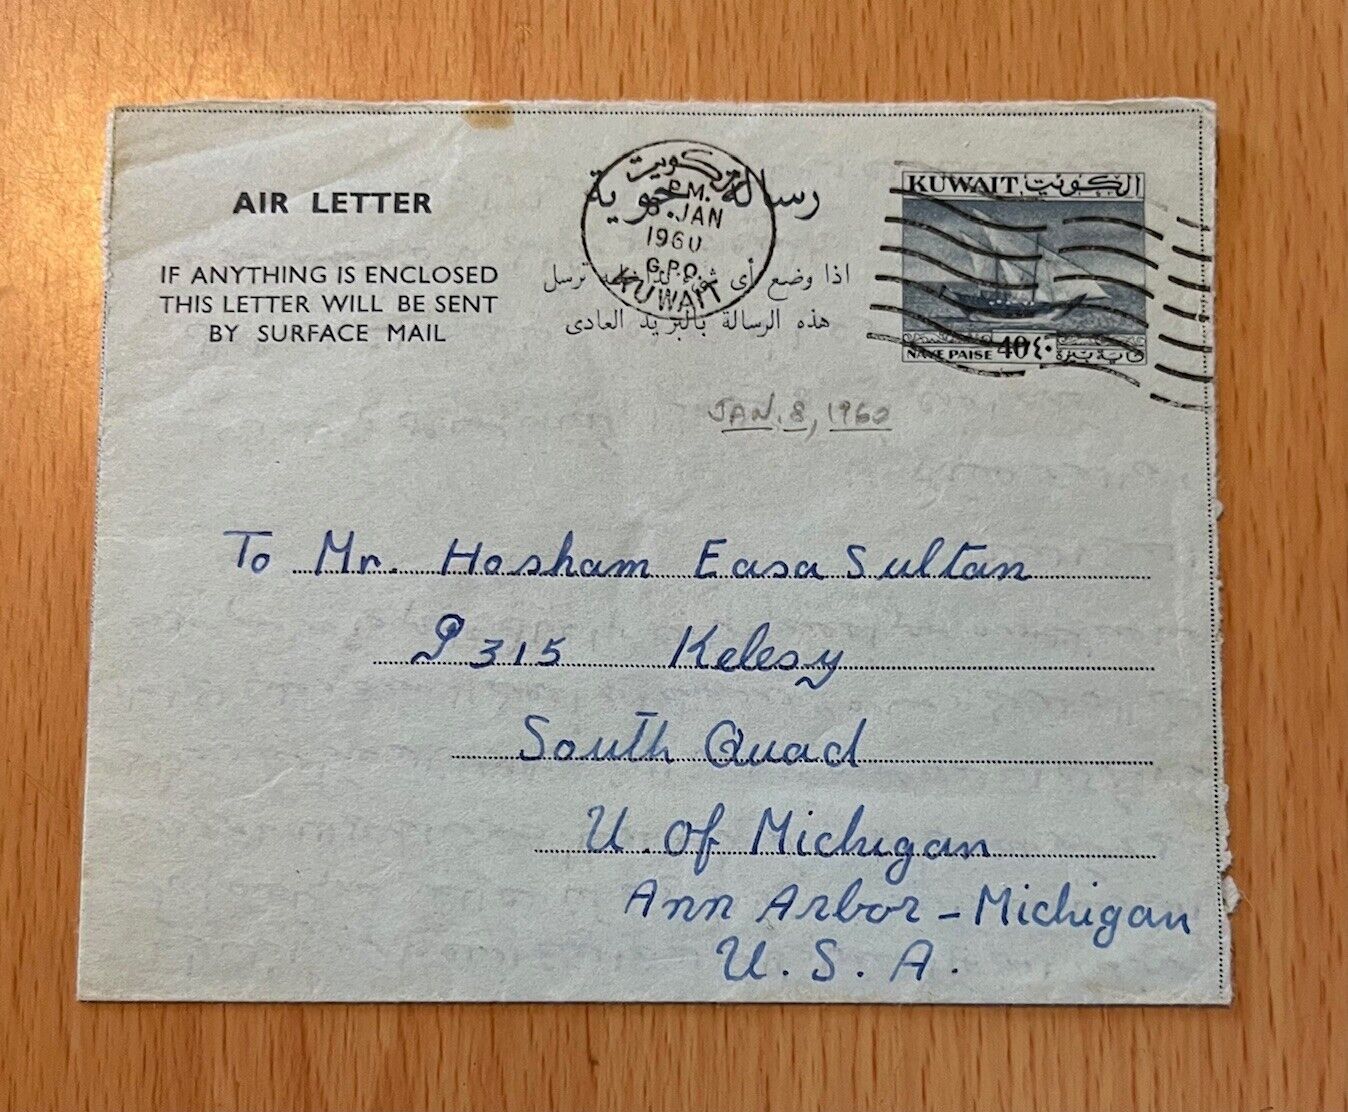 AIR LETTER
IF ANYTHING IS ENCLOSED
THIS LETTER WILL BE SENT
BY SURFACE MAIL
رسالة جوية
اذا وضع أى شئ بداخله ترسل
هذه الرسالة بالبريد العادى
الكويت
P.M.
8 JAN
1960
G.P.O.
KUWAIT
KUWAIT الكويت
NAYE PAISE 40 ٤٠ نايه بيزة
JAN. 8, 1960
To Mr. Hosham Easa Sultan
P315 Kelesy
South Quad
U. of Michigan
Ann Arbor - Michigan
U. S. A.